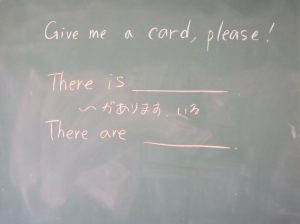 Give me a card, please!
There is ______
〜があります、いる
There are ______.